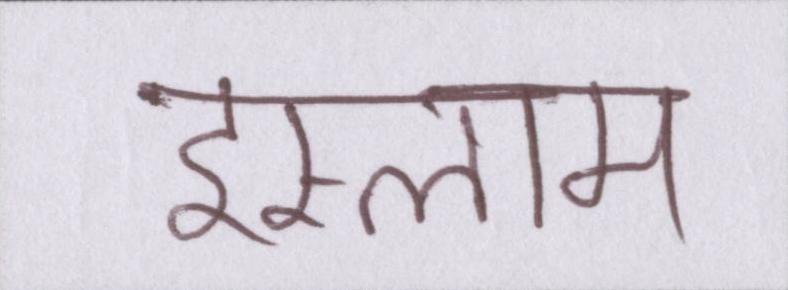 इस्लाम